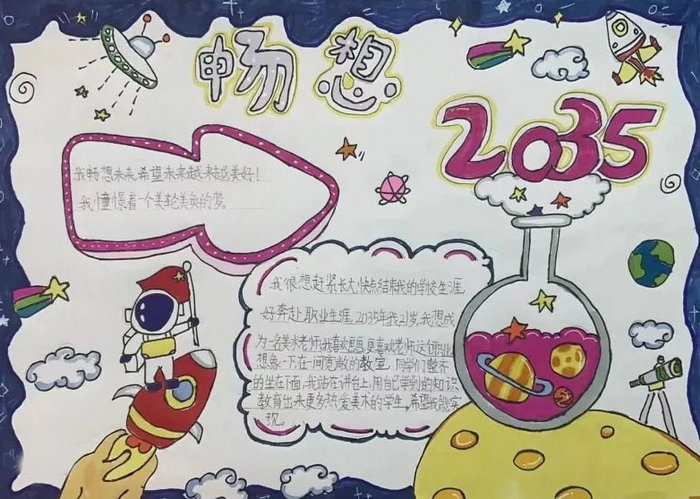 畅想
2035
我畅想未来,希望未来越来越美好!
我憧憬着一个美轮美奂的梦。
我很想赶紧长大,快点结束我的学校生涯,
好奔赴职业生涯,2035年我21岁,我想成
为一名美术老师,我喜欢画画更喜欢老师这个职业
想象一下在一间宽敞的教室,同学们整齐
的坐在下面,我站在讲台上,用自己学到的知识
教育出来更多热爱美术的学生,希望我能实
现。